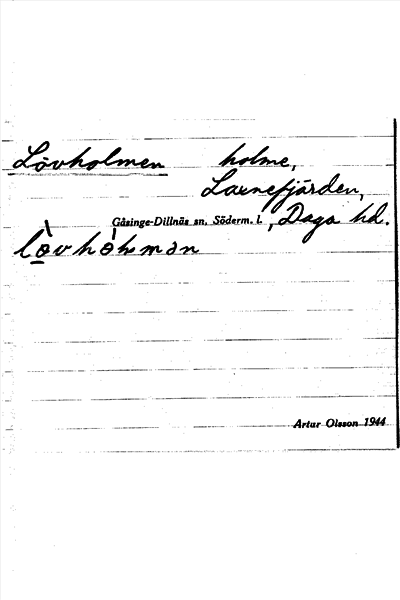 Lövholmen holme,
Laxnefjärden,
Gåsinge-Dillnäs sn, Söderm. l., Daga hd.
lø̀vhòlmən
Artur Olsson 1944